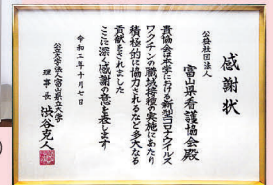 感謝状
公益社団法人
富山県看護協会殿
貴協会は本学における新型コロナウイルス
ワクチンの職域接種の実施にあたり
積極的に協力されるなど多大なる
貢献をされました
ここに深く感謝の意を表します
令和三年十月七日
公立大学法人富山県立大学
理事長 渋谷克人